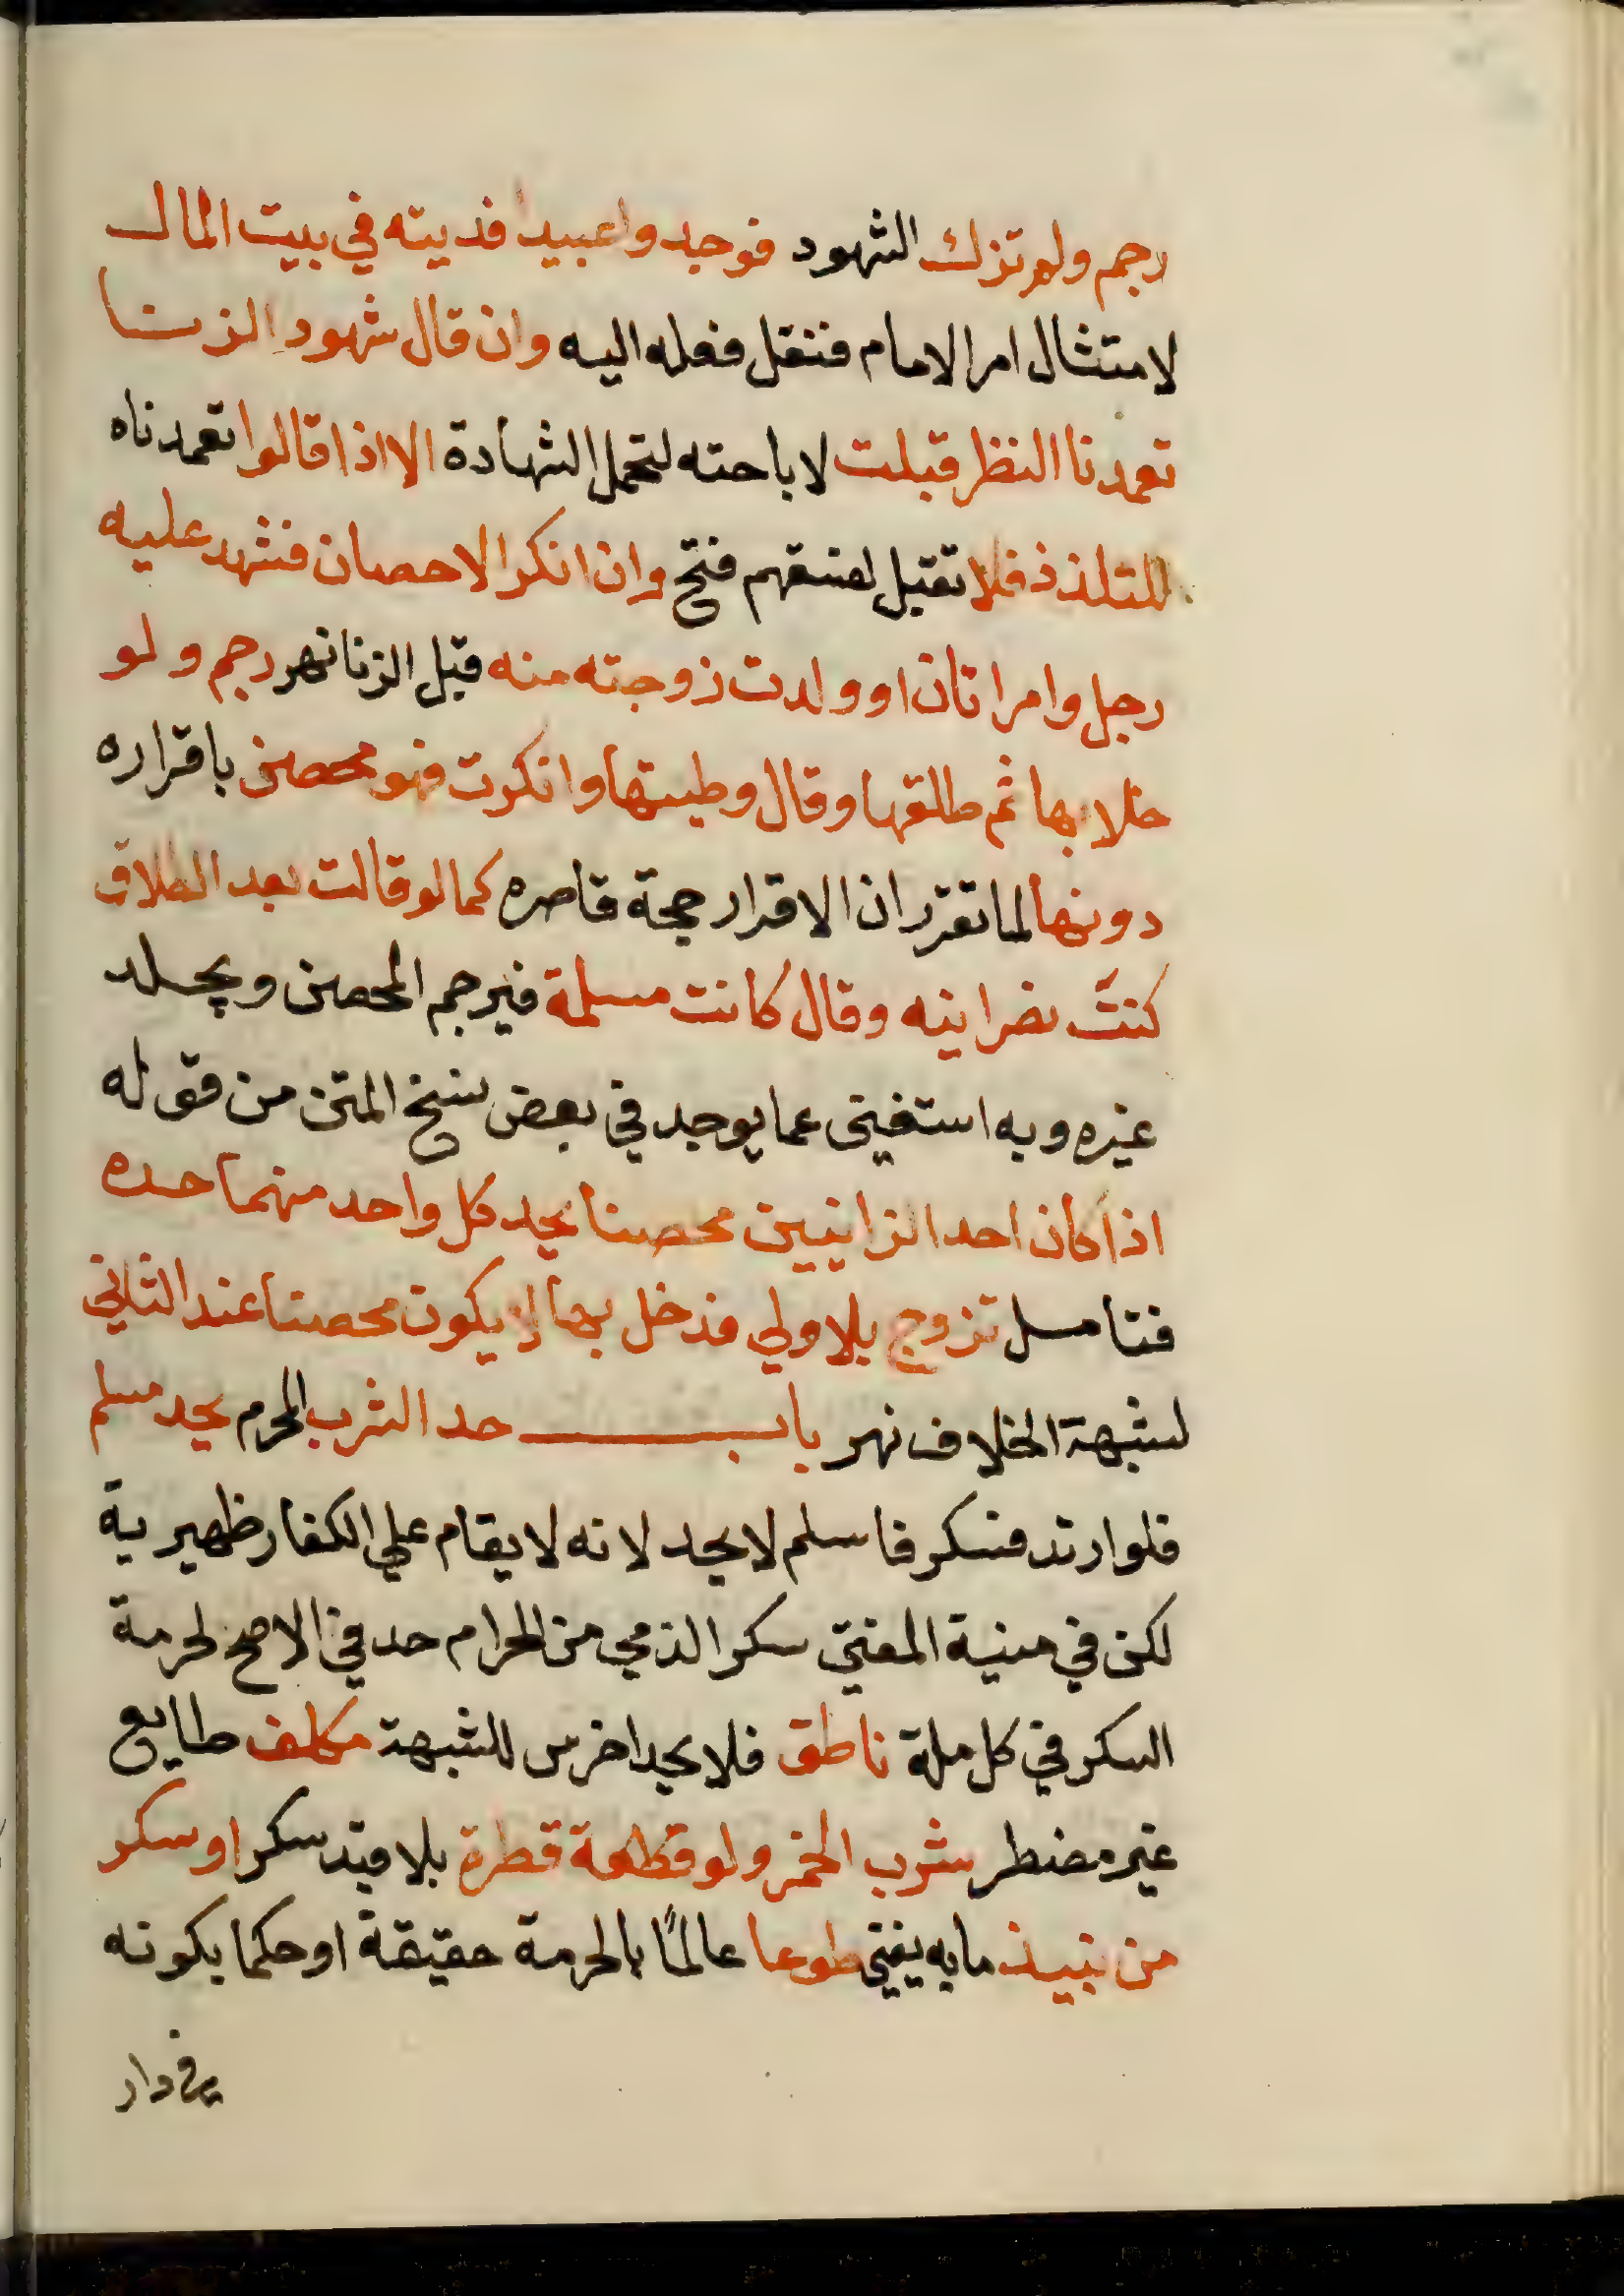 رجم ولم تزك الشهود فوجدوا عبيدا فديته في بيت المال
لامتثال امر الامام فنقل فعله اليه وان قال شهود الزنا
تعمدنا النظر قبلت لاباحته لتحمل الشهادة الا اذا قالوا تعمدناه
للتلذذ فلا تقبل لفسقهم فتح وان انكر الاحصان فشهد عليه
رجل وامراتان او ولدت زوجته منه قبل الزنا نهر رجم ولو
خلا بها ثم طلقها وقال وطيتها وانكرت فهو محصن باقراره
دونها لما تقرر ان الاقرار حجة قاصره كما لو قالت بعد الطلاق
كنت نصرانيه وقال كانت مسلمة فيرجم المحصن ويجلد
غيره وبه استغنى عما يوجد في بعض نسخ المتن من قوله
اذا كان احد الزانيين محصنا يحد كل واحد منهما حده
فتامل تزوج بلا ولي فدخل بها لا يكون محصنا عند الثاني
لشبهة الخلاف نهر باب حد الشرب المحرم يحد مسلم
فلو ارتد فسكر فاسلم لا يحد لانه لا يقام علي الكفار ظهيرية
لكن في منية المفتي سكر الذمي من الحرام حد في الاصح لحرمة
السكر في كل ملة ناطق فلا يحد اخرس للشبهة مكلف طايع
غير مضطر شرب الخمر ولو قطعة قطرة بلا قيد سكر او سكر
من نبيذ ما به يفتي طوعا عالمًا بالحرمة حقيقة او حكما بكونه
في دار